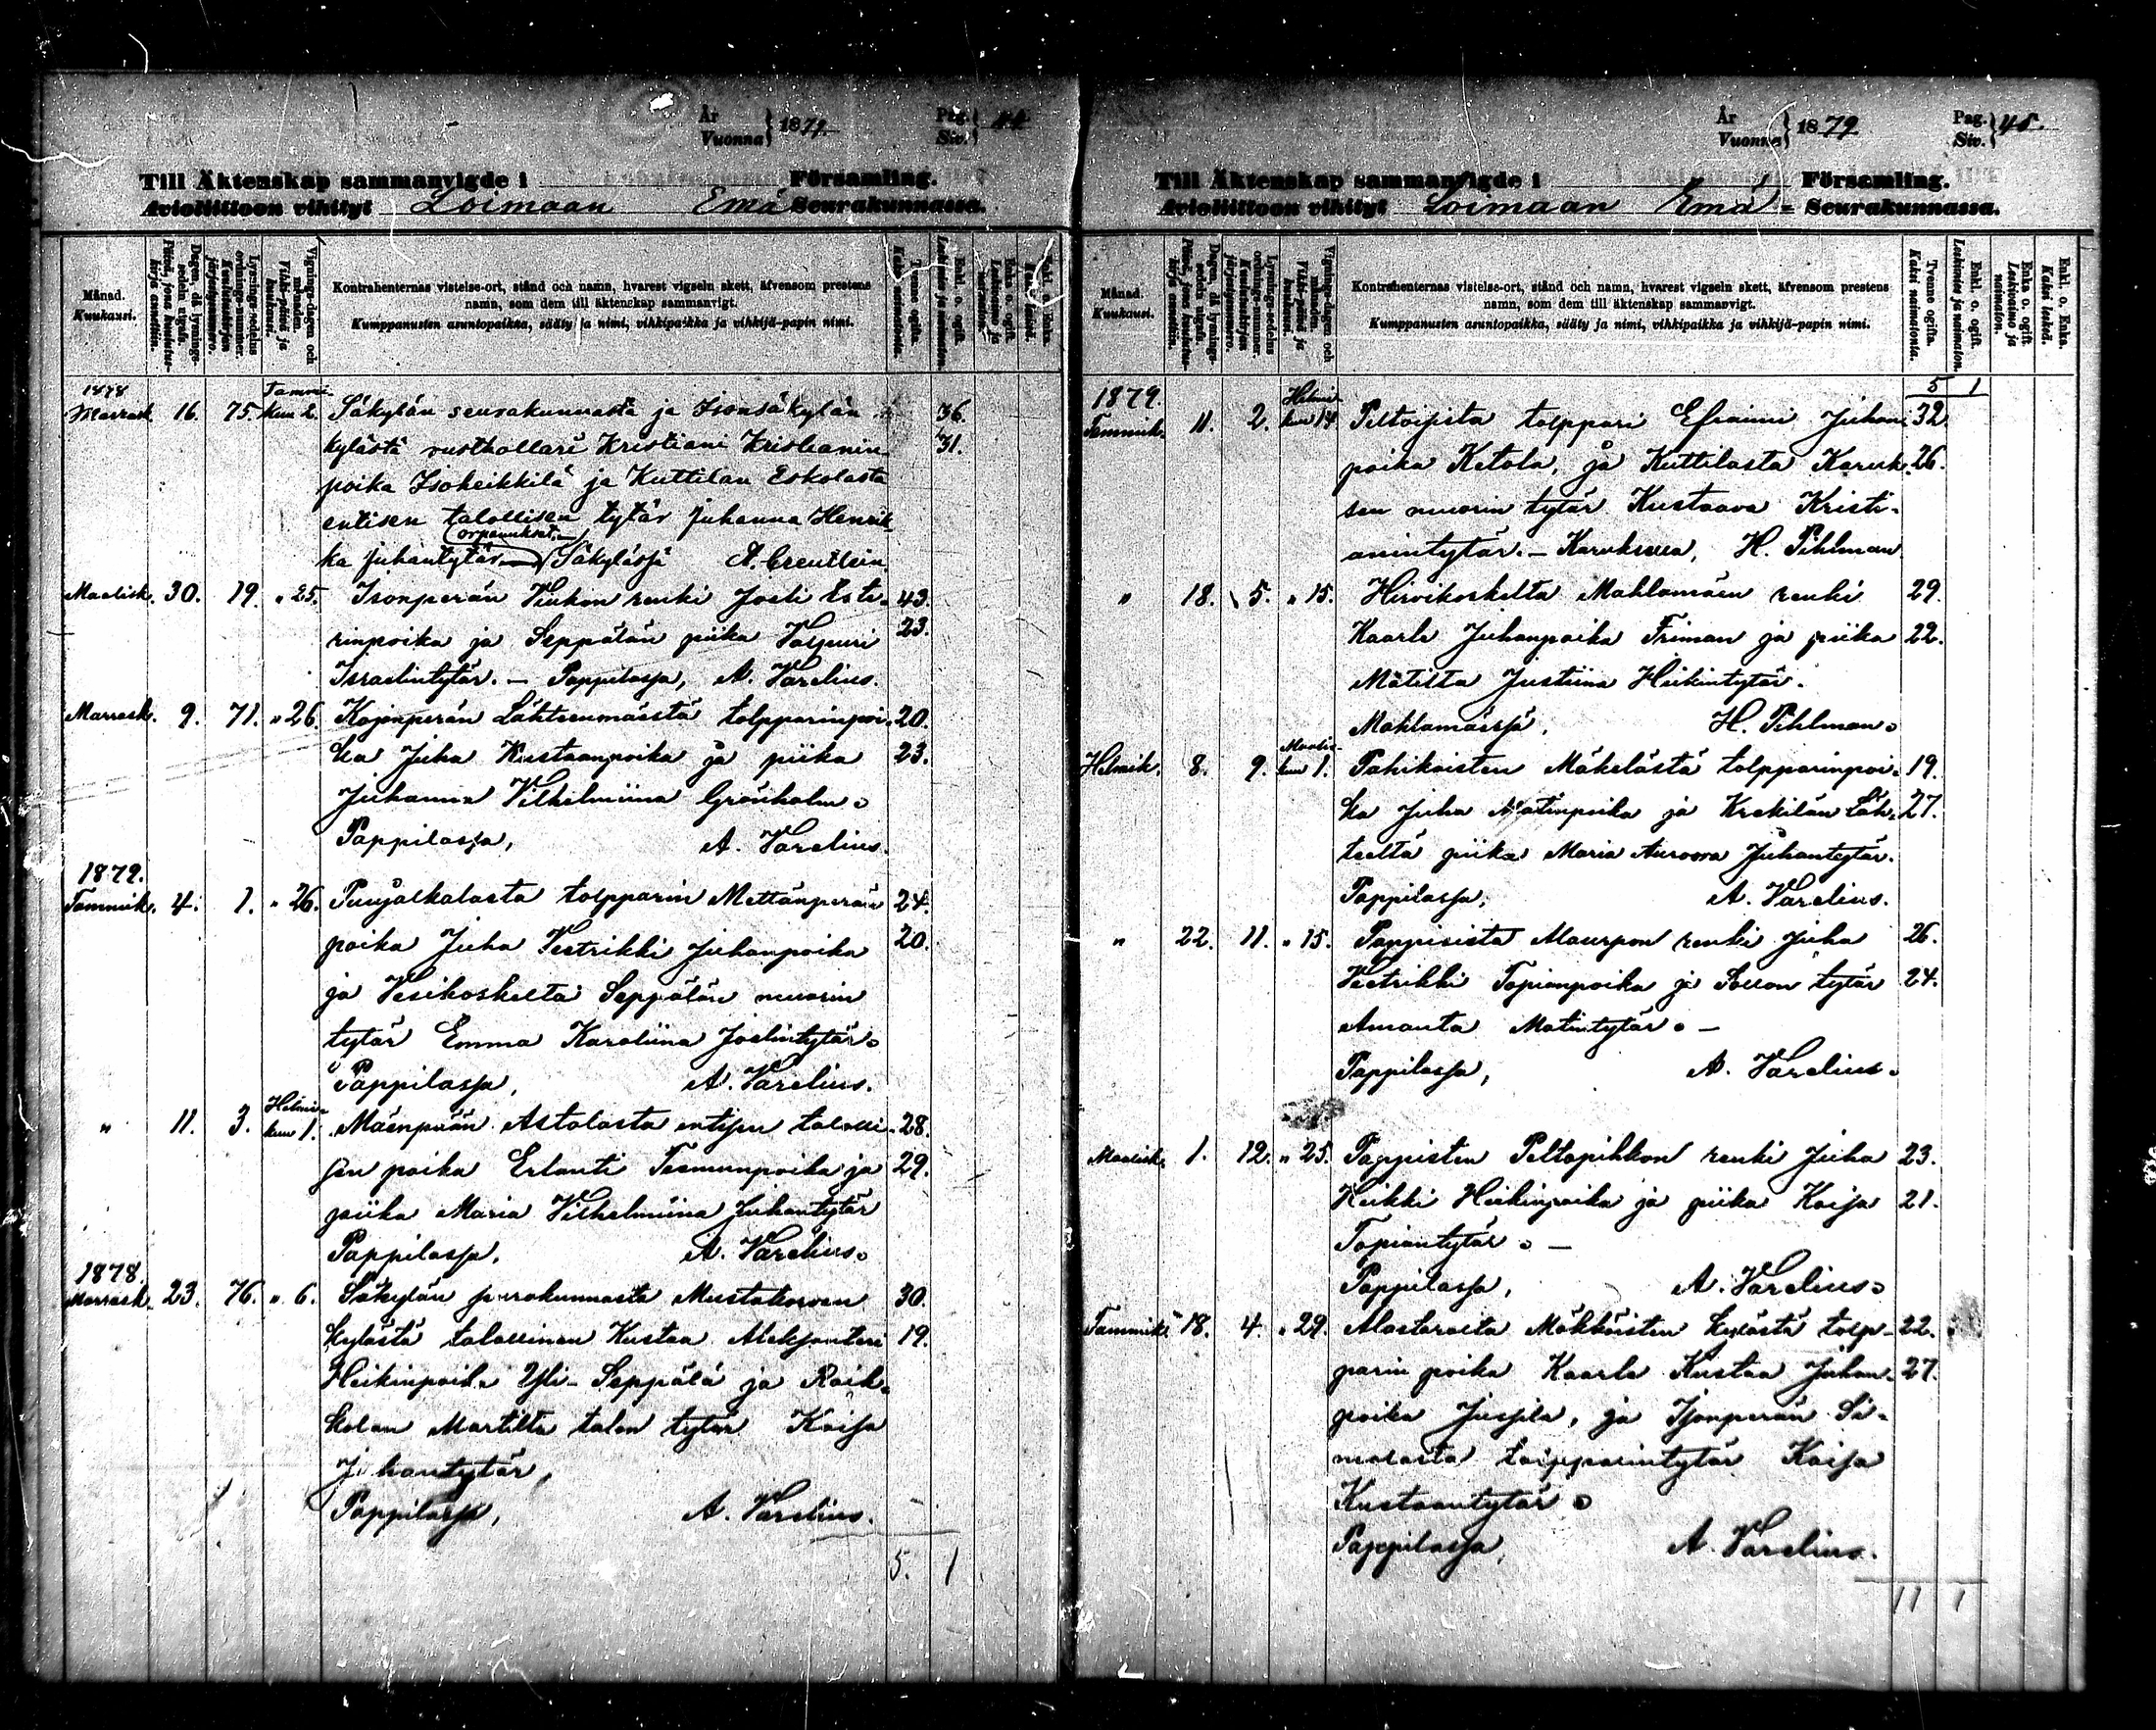 År
Vuonna } 1879.
Pag.
Siv. } 44
Till Äktenskap sammanvigde i Församling.
Avioliittoon vihityt Loimaan Emä Seurakunnassa.
Månad.
Kuukausi.
Dagen, då lysnings-
sedeln utgafs.
Päivä, jona kuulutus-
kirja annettiin.
Lysnings-sedelns
ordnings-nummer.
Kuulutuskirjan
järjestysnumero.
Vignings-dagen och
månaden.
Vihki-päivä ja
kuukausi.
Kontrahenternas vistelse-ort, stånd och namn, hvarest vigseln skett, äfvensom prestens
namn, som dem till äktenskap sammanvigt.
Kumppanusten asuntopaikka, sääty ja nimi, vihkipaikka ja vihkijä-papin nimi.
Tvenne ogifta.
Kaksi naimatonta.
Enkl. o. ogift.
Leskimies ja naimaton.
Enka o. ogift.
Leskivaimo ja
naimaton.
Enkl. o. Enka.
Kaksi leskeä.
1878
Marrask. 16. 75. Tammi-
kuu 2. Säkylän seurakunnasta ja Isonsäkylän 36.
kylästä rusthollari Kristiani Kristianin- 31.
poika Isoheikkilä ja Kuttilan Eskolasta
entisen talollisen tytär Juhanna Henrik-
orpanukset
ka Juhantytär — Säkylässä
Maalisk. 30. 19. " 25. Isonperän Viukon renki Josli Este- 43.
rinpoika ja Seppälän piika Valpuri 23.
Israelintytär. — Pappilassa, A. Varelius.
Marrask. 9. 71. " 26. Kojonperän Lähteenmäestä tolpparinpoi- 20.
ka Juha Kustaanpoika ja piika 23.
Juhanna Vilhelmiina Grönholm.
Pappilassa, A. Varelius.
1879.
Tammik. 4. 1. " 26. Puujalkalasta tolpparin Mettänperän 24.
poika Juha Vestrikki Juhanpoika 20.
ja Vesikoskelta Seppälän muorin
tytär Emma Karoliina Joelintytär.
Pappilassa, A. Varelius.
" 11. 3. Helmi-
kuu 1. Mäenpään Astalasta entisen talolli- 28.
sen poika Erlanti Taamunpoika ja 29.
piika Maria Vilhelmiina Juhantytär
Pappilassa. A. Varelius.
1878.
Marrask. 23. 76. " 6. Säkylän seurakunnasta Mustakorven 30.
kylästä talollinen Kustaa Aleksanteri 19.
Heikinpoika Yli-Seppälä ja Raik-
kolan Martilta talon tytär Kaisa
Juhantytär,
Pappilassa, A. Varelius.
5. 1
År
Vuonna } 1879
Pag.
Siv. } 45.
Till Äktenskap sammanvigde i Församling.
Avioliittoon vihityt Loimaan Emä = Seurakunnassa.
Månad.
Kuukausi.
Dagen, då lysnings-
sedeln utgafs.
Päivä, jona kuulutus-
kirja annettiin.
Lysnings-sedelns
ordnings-nummer.
Kuulutuskirjan
järjestysnumero.
Vignings-dagen och
månaden.
Vihki-päivä ja
kuukausi.
Kontrahenternas vistelse-ort, stånd och namn, hvarest vigseln skett, äfvensom prestens
namn, som dem till äktenskap sammanvigt.
Kumppanusten asuntopaikka, sääty ja nimi, vihkipaikka ja vihkijä-papin nimi.
Tvenne ogifta.
Kaksi naimatonta.
Enkl. o. ogift.
Leskimies ja naimaton.
Enka o. ogift.
Leskivaimo ja
naimaton.
Enkl. o. Enka.
Kaksi leskeä.
5 1
1879.
Tammik. 11. 2. Helmi-
kuu 14 Peltoisista tolppari Efraimi Juhan- 32.
poika Ketola, ja Kuttilasta Karuk- 26.
sen muorin tytär Kustaava Kristi-
anintytär. — Karuksessa, H. Pihlman
" 18. 5. " 15. Hirvikoskelta Mahlamäen renki 29.
Kaarle Juhanpoika Friman ja piika 22.
Matilta Justiina Heikintytär.
Mahlamäessä, H. Pihlman.
Helmik. 8. 9. Maalis-
kuu 1. Pahikaisten Mäkelästä tolpparinpoi- 19.
ka Juha Matinpoika ja Krekilän Läh- 27.
teeltä piika Maria Auroora Juhantytär.
Pappilassa, A. Varelius.
" 22. 11. " 15. Tappisista Maurpon renki Juha 26.
Vestrikki Topianpoika ja tytär 24.
Amanta Matintytär. —
Pappilassa, A. Varelius.
Maalisk. 1. 12. " 25. Tappisten Peltopihkon renki Juha 23.
Heikki Heikinpoika ja piika Kaisa 21.
Topiantytär. —
Pappilassa, A. Varelius.
Tammik. 18. 4. " 29. Alastarolta Mälkäisten kylästä tolp- 22.
parin poika Kaarle Kustaa Juhan- 27.
poika Jussila, ja Isonperän Si-
molasta tolpparintytär Kaisa
Kustaantytär.
Pappilassa, A. Varelius.
11 1